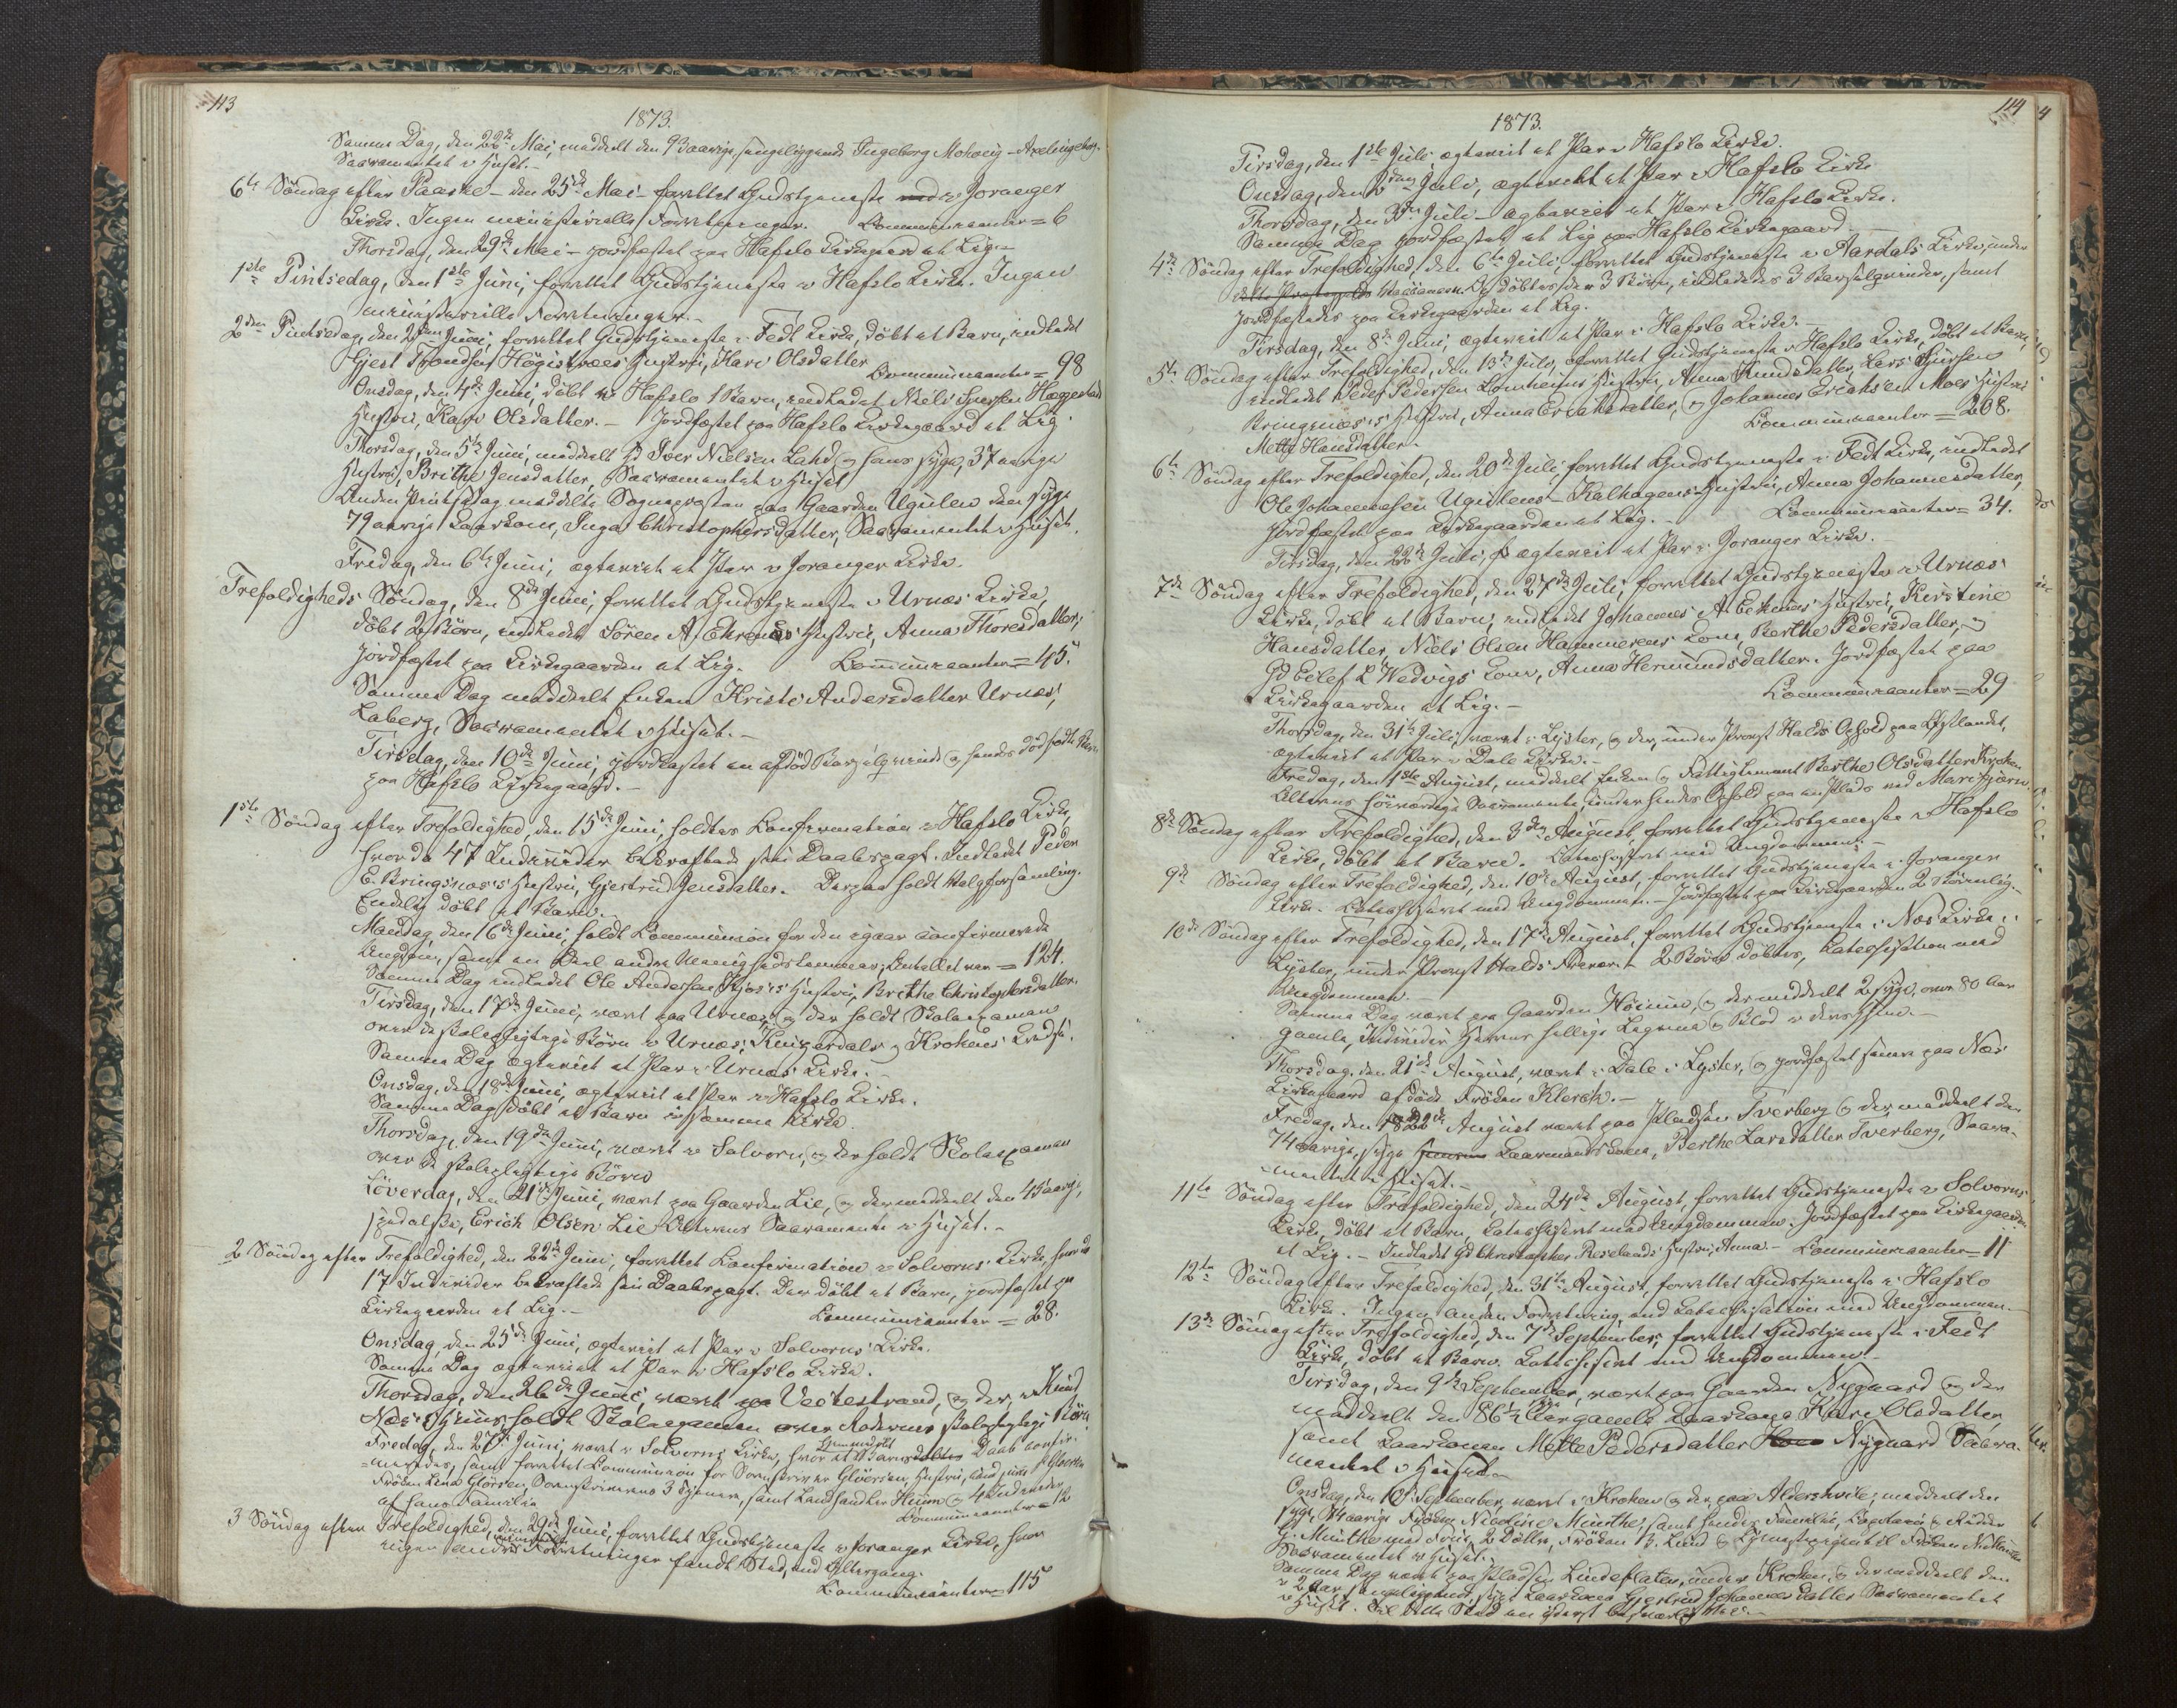 113
1873.
Samme Dag, den 22de Mai, meddelt den 93aarige, sengeliggende Ingeborg Mohaug-
Sacramentet i Huset.-
6te Söndag efter Paaske - den 25de Mai - forrettet Gudstjeneste i Joranger
Kirke. Ingen ministerielle Forretninger. Communicanter = 6
Thorsdag, den 29de Mai - jordfæstet paa Hafslo Kirkegaard et Lig.-
1ste Pintsedag, den 1ste Juni, forrettet Gudstjeneste i Hafslo Kirke. Ingen
ministerielle Forretninger.-
2den Pintsedag, den 2den Juni, forrettet Gudstjeneste i Fedt Kirke, döbt et Barn, indledet
Gjest Trondsen Högistræes Hustru, Kari Olsdatter Communicanter = 98
Onsdag, den 4de Juni, döbt i Hafslo 1 Barn, indledet Niels Hæggestad
Hustru, Kari Olsdatter.- Jordfæstet paa Hafslo Kirkegaard et Lig.
Thorsdag, den 5te Juni, meddelt Gd Iver Nielsen Lahd og hans syge, 37 aarige
Hustru, Brithe Jensdatter, Sacramentet i Huset
Anden Pintsedag meddelte Sogneprosten paa Gaarden Ugulen den syge
79 aarige Kaarkone, Inga Christophersdatter, Sacramentet i Huset.
Fredag, den 6te Juni, ægteviet et Par i Joranger Kirke.
Trefoldigheds Söndag, den 8de Juni, forrettet Gudstjeneste i Urnæs Kirke,
döbt 2 Börn, indledet Sören A. Hustru, Anna Thoresdatter;
jordfæstet paa Kirkegaarden et Lig. Communicanter = 45.
Samme Dag meddelt Enken Kristi Andersdatter Urnæs,
Laberg, Sacramentet i Huset.-
Tirsdag, den 10de Juni, jordfæstet en afdöd Barselqvinde og hendes dödfödte Barn
paa Hafslo Kirkegaard.-
1ste Söndag efter Trefoldighed, den 15de Juni, holdtes Konfirmation i Hafslo Kirke,
hvor da 47 Individer bekræftede sin Daabspagt. Indledet Peder
E. Bringsnæs's Hustru, Gjertrud Jensdatter. Derpaa holdt Valgforsamling.
Endelig döbt et Barn.
Mandag, den 16de Juni, holdt Communion for den igaar confirmerede
Ungdom, samt en Deel andre Menighedslemmer; Antallet var = 124.
Samme Dag indledet Ole Andersen Hustru, Brithe Christophersdatter.
Tirsdag, den 17de Juni, været paa Urnæs, og der holdt Skoleexamen
over de skolepligtige Börn i Urnæs, og Krokens Kreds.
Samme Dag ægteviet et Par i Urnæs Kirke.-
Onsdag, den 18de Juni, ægteviet et Par i Hafslo Kirke.
Samme Dag döbt et Barn i samme Kirke.
Thorsdag, den 19de Juni, været i Solvorn, og der holdt Skoleexamen
over de skolepligtige Börn
Löverdag, den 21de Juni, været paa Gaarden Lie, og der meddelt den 45aarige,
spedalske, Erich Olsen Lie Alterens Sacramente i Huset.-
2 Söndag efter Trefoldighed, den 22de Juni, forrettet Konfirmation i Solvorns Kirke, hvor da
17 Individer bekræftede sin Daabspagt. Der döbt et Barn, jordfæstet paa
Kirkegaarden et Lig.- Communicanter = 28.
Onsdag, den 25de Juni, ægteviet et Par i Solvorns Kirke.
Samme Dag ægteviet et Par i Hafslo Kirke.
Thorsdag, den 26de Juni, været paa Veitestrand, og der,
holdt Skoleexamen over skolepligtige Börn
Fredag, den 27de Juni, været i Solvorns Kirke, hvor et Barns hjemmedöbt Daab confir-
meredes, samt forrettet Communion for Sorenskriver
Fröken Lina Sorenskriverens 3 samt Landhandler Heium og 4 Individer
af hans Familie Communicanter = 12
3 Söndag efter Trefoldighed, den 29de Juni, forrettet Gudstjeneste i Joranger Kirke, hvor
ingen andre ministerielle Forretninger fandt Sted, end Altergang.
Communicanter = 115
114
1873.
Tirsdag, den 1ste Juli, ægteviet et Par i Hafslo Kirke.
Onsdag, den 2den Juli, ægteviet et Par i Hafslo Kirke
Thorsdag, den 3die Juli - ægteviet et Par i Hafslo Kirke.
Samme Dag jordfæstet et Lig paa Hafslo Kirkegaard.-
4de Söndag efter Trefoldighed, den 6te Juli, forrettet Gudstjeneste i Aardals Kirke, under
Vacancen. Og döbtes der 3 Börn, indlededes 3 Barselqvinder, samt
jordfæstedes paa Kirkegaarden et Lig.
Tirsdag, den 8de Juni, ægteviet et Par i Hafslo Kirke.-
5te Söndag efter Trefoldighed, den 13de Juli, forrettet Gudstjeneste i Hafslo Kirke, döbt et Barn,
indledet Peder Pedersen Hustru, Anna Knudsdatter, Lars
Bringenæs's Hustru, Anna Erichsdatter, og Johannes Erichsen Moes Hustru
Mette Hansdatter. Communicanter = 208.
6te Söndag efter Trefoldighed, den 20de Juli, forrettet Gudstjeneste i Fedt Kirke, indledet
Ole Johannesen Ugulens - Kalhagens Hustru, Anna Johannesdatter,
jordfæstet paa Kirkegaarden et Lig.- Communicanter = 34.
Tirsdag, den 22de Juli, ægteviet et Par i Joranger Kirke.
7de Söndag efter Trefoldighed, den 27de Juli, forrettet Gudstjeneste i Urnæs
Kirke, döbt et Barn; indledet Johannes A. Hustru, Kirstine
Hansdatter, Niels Olsen Hammerens Kone, Berthe Pedersdatter, og
Gd Eilef L. Wedvigs Kone, Anna Hermundsdatter. Jordfæstet paa
Kirkegaarden et Lig.- Communicanter = 29
Thorsdag, den 31te Juli, været i Lyster, og der, under Provst Halds Ophold paa Östlandet,
ægteviet et Par i Dale Kirke.-
Fredag, den 1ste August, meddelt Enken og Fattiglemmet Berthe Olsdatter
Alterens höiværdige Sacramente, under hendes Ophold paa en Plads ved Marifjæren
8de Söndag efter Trefoldighed, den 3die August, forrettet Gudstjeneste i Hafslo
Kirke, döbt et Barn. Catechiseret med Ungdommen.-
9de Söndag efter Trefoldighed, den 10de August, forrettet Gudstjeneste i Joranger
Kirke. Catechiseret med Ungdommen.- Jordfæstet paa Kirkegaarden 2 Börnelig.-
10de Söndag efter Trefoldighed, den 17de August, forrettet Gudstjeneste i Næs Kirke i
Lyster, under Provst Halds Fravær.- 2 Börn döbtes, Catechisation med
Ungdommen.
Samme Dag været paa Gaarden Höium, og der meddelt 2 syge, over 80 Aar
gamle, Individer Herrens hellige Legeme og Blod i
Thorsdag, den 21de August, været i Dale i Lyster, og jordfæstet paa Næs
Kirkegaard afdöde Fröken Klerck.-
Fredag, den 22de August været paa Pladsen Tverberg og der meddelt den
74aarige, syge Kaarmandskone, Berthe Larsdatter Tverberg, Sacra-
mentet i Huset.-
11te Söndag efter Trefoldighed, den 24de August, forrettet Gudstjeneste i Solvorns
Kirke, döbt et Barn, Catechiseret med Ungdommen. Jordfæstet paa Kirkegaarden
et Lig.- Indledet Gd Christopher Hustru, Anna - Communicanter = 11
12te Söndag efter Trefoldighed, den 31te August, forrettet Gudstjeneste i Hafslo
Kirke. Ingen anden Forretning, end Catechisation med Ungdommen.-
13de Söndag efter Trefoldighed, den 7de September, forrettet Gudstjeneste i Fedt
Kirke, döbt et Barn. Catechiseret med Ungdommen.-
Tirsdag, den 9de September, været paa Gaarden Nygaard og der
meddelt den 86 Aar gamle Kaarkone Kari Olsdatter
samt Kaarkonen Mette Pedersdatter Nygaard Sacra-
mentet i Huset.-
Onsdag, den 10de September, været i Kroken og der, paa Aldershvile, meddelt den
syge, 74aarige Fröken Nicoline Munthe, samt hendes Familie,
G. Munthe med Frue, 2 Döttre, Fröken Lund og
Sacramentet i Huset.
Samme Dag været paa Pladsen Lindeflaten, under Kroken, og der meddelt den
i 2 Aar sengeliggende, syge Kaarkone Gjertrud Johannesdatter Sacramentet
i Huset. Til dette Sted en yderst besværlig Vei.-